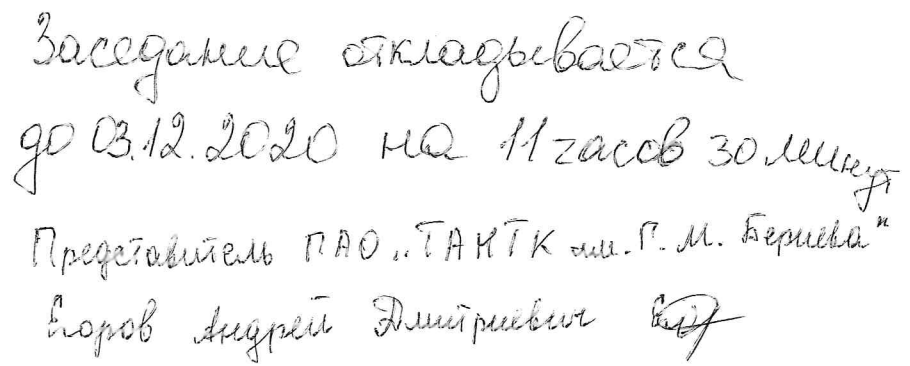 Заседание откладывается
до 03.12.2020 на 11 часов 30 минут
Представитель ПАО „ТАНТК им. Г. М. Бериева"
Егоров Андрей Дмитриевич